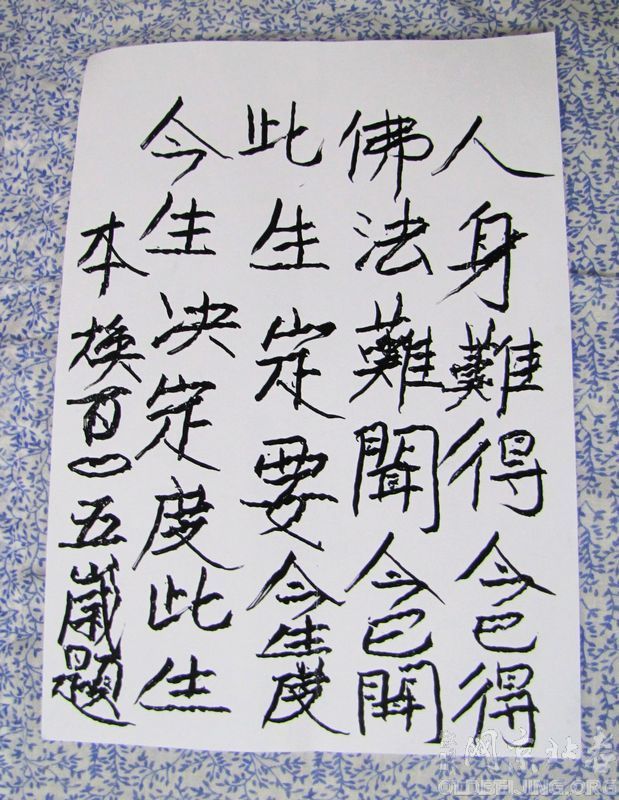 人身難得今已得
佛法難聞今已聞
此生定要今生度
今生決定度此生
本煥百〇五歲題
老北京网
OLDBEIJING.ORG